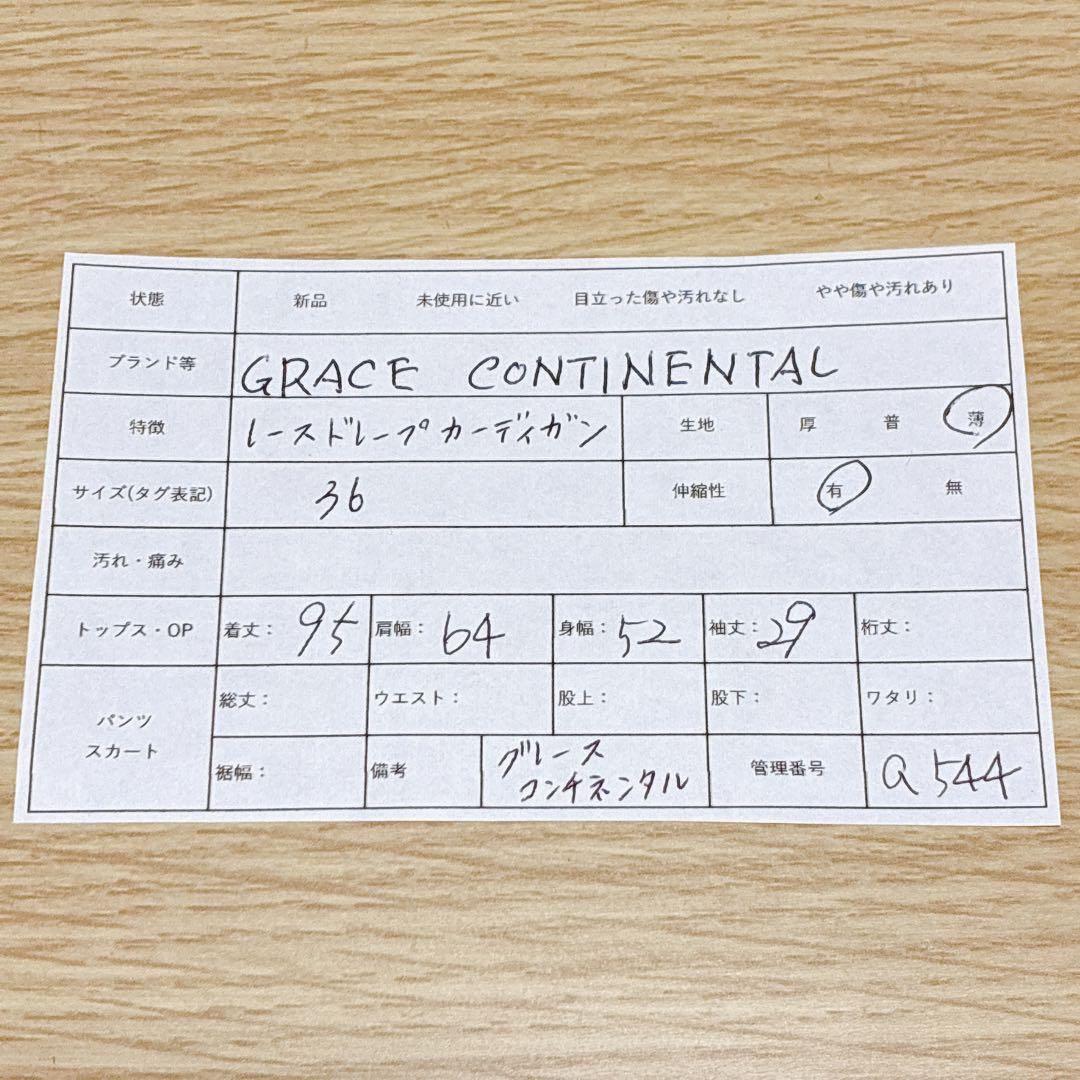 状態 新品 未使用に近い 目立った傷や汚れなし やや傷や汚れあり
ブランド等 GRACE CONTINENTAL
特徴 レースドレープカーディガン 生地 厚 普 薄
サイズ(タグ表記) 36 伸縮性 有 無
汚れ・痛み
トップス・OP 着丈: 95 肩幅: 64 身幅: 52 袖丈: 29 裄丈:
パンツ
スカート
総丈: ウエスト: 股上: 股下: ワタリ:
裾幅: 備考 グレース
コンチネンタル
管理番号 a 544